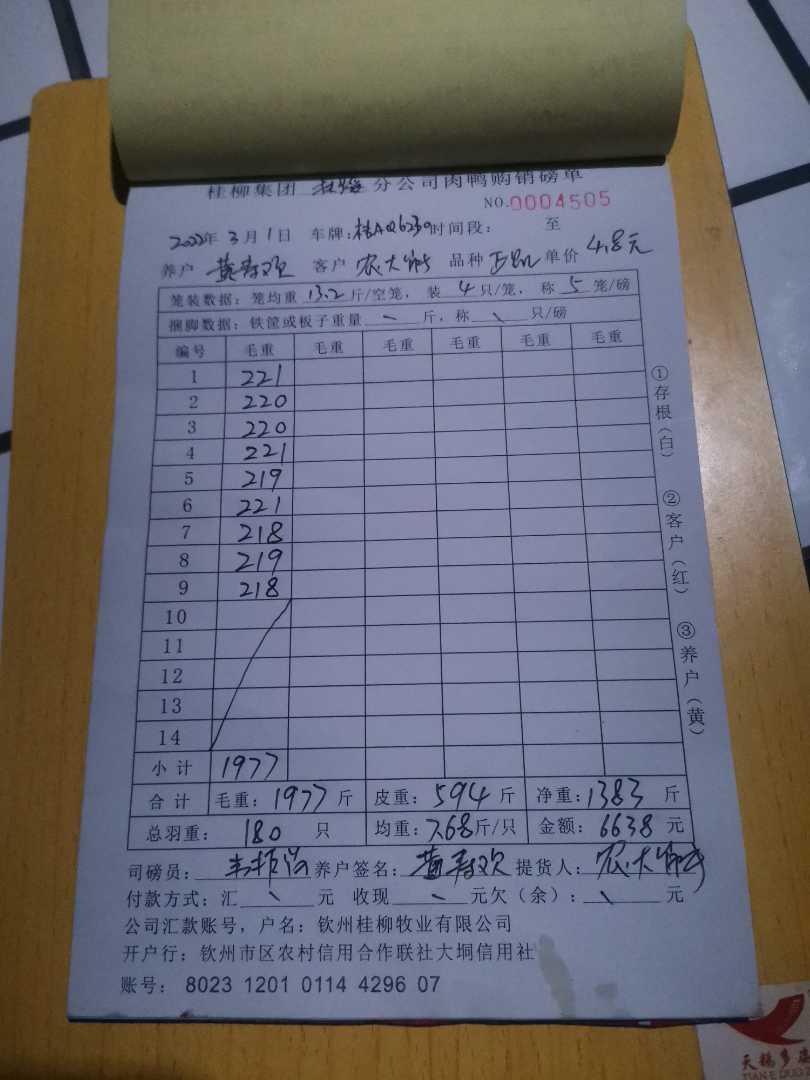 桂柳集团 分公司肉鸭购销磅单
NO.0004505
2022年 3月1日 车牌:桂AQ6230时间段: 至
养户 黄寿欢 客户 农大师 品种 单价 4.8元
笼装数据:笼均重 13.2 斤/空笼, 装 4 只/笼, 称 5 笼/磅
捆脚数据:铁筐或板子重量 斤,称 只/磅
编号 毛重 毛重 毛重 毛重 毛重 毛重
1 221
2 220
3 220
4 221
5 219
6 221
7 218
8 219
9 218
10
11
12
13
14
小计 1977
合计 毛重:1977 斤 皮重:594 斤 净重:1383 斤
总羽重: 180 只 均重:7.68斤/只 金额:6638 元
司磅员: 养户签名:黄寿欢 提货人:农大师
付款方式:汇 元 收现 元欠(余): 元
公司汇款账号,户名:钦州桂柳牧业有限公司
开户行:钦州市区农村信用合作联社大垌信用社
账号: 8023 1201 0114 4296 07
①存根(白)
②客户(红)
③养户(黄)
天鹅多